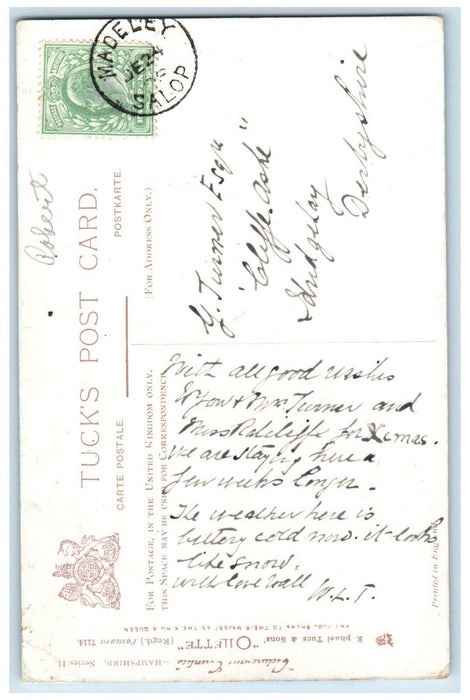 TUCK'S POST CARD.
CARTE POSTALE. POSTKARTE.
FOR POSTAGE, IN THE UNITED KINGDOM ONLY,
THIS SPACE MAY BE USED FOR CORRESPONDENCE
(FOR ADDRESS ONLY.)
MADELEY
DE 24
SALOP
Robert
With all good wishes
to you & Mrs Turner and
Miss Radcliffe for Xmas.
we are staying here a
few weeks longer.
The weather here is
bittery cold now. it looks
like snow.
with love to all
W. L. T.
Y. Turner Esqr
"Cliffe Ashe"
Derbyshire
Printed in England
Raphael Tuck & Sons' "OILETTE" [Regd.] Postcard
ART PUBLISHERS TO THEIR MAJESTIES THE KING & QUEEN
—HAMPSHIRE. Series II.